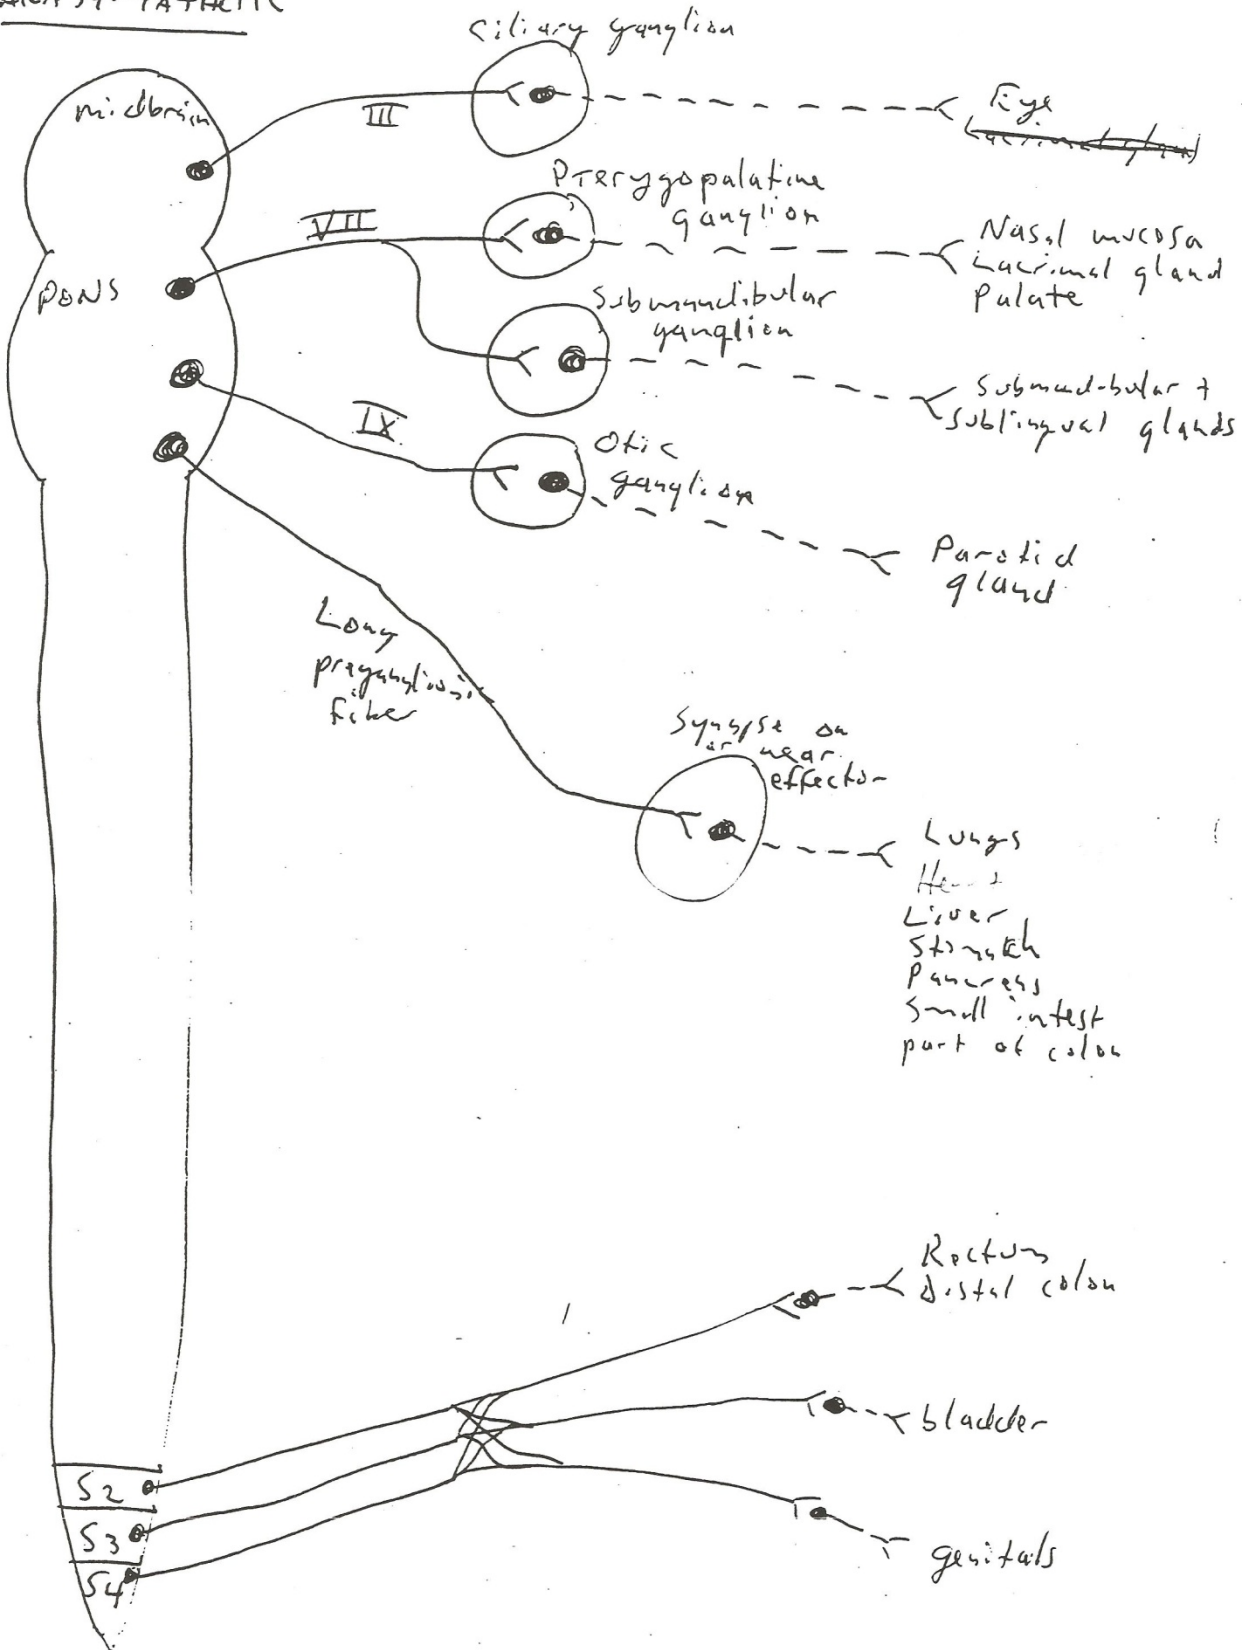 PARASYMPATHETIC
Ciliary ganglion
midbrain
III
Eye
Lacrimal gland
Pterygopalatine
ganglion
VII
Nasal mucosa
Lacrimal gland
Palate
PONS
Submandibular
ganglion
Submandibular +
Sublingual glands
IX
Otic
ganglion
Parotid
gland
Long
preganglionic
fiber
Synapse on
or near
effector
Lungs
Heart
Liver
Stomach
Pancreas
Small intest
part of colon
Rectum
Distal colon
bladder
S2
S3
S4
genitals